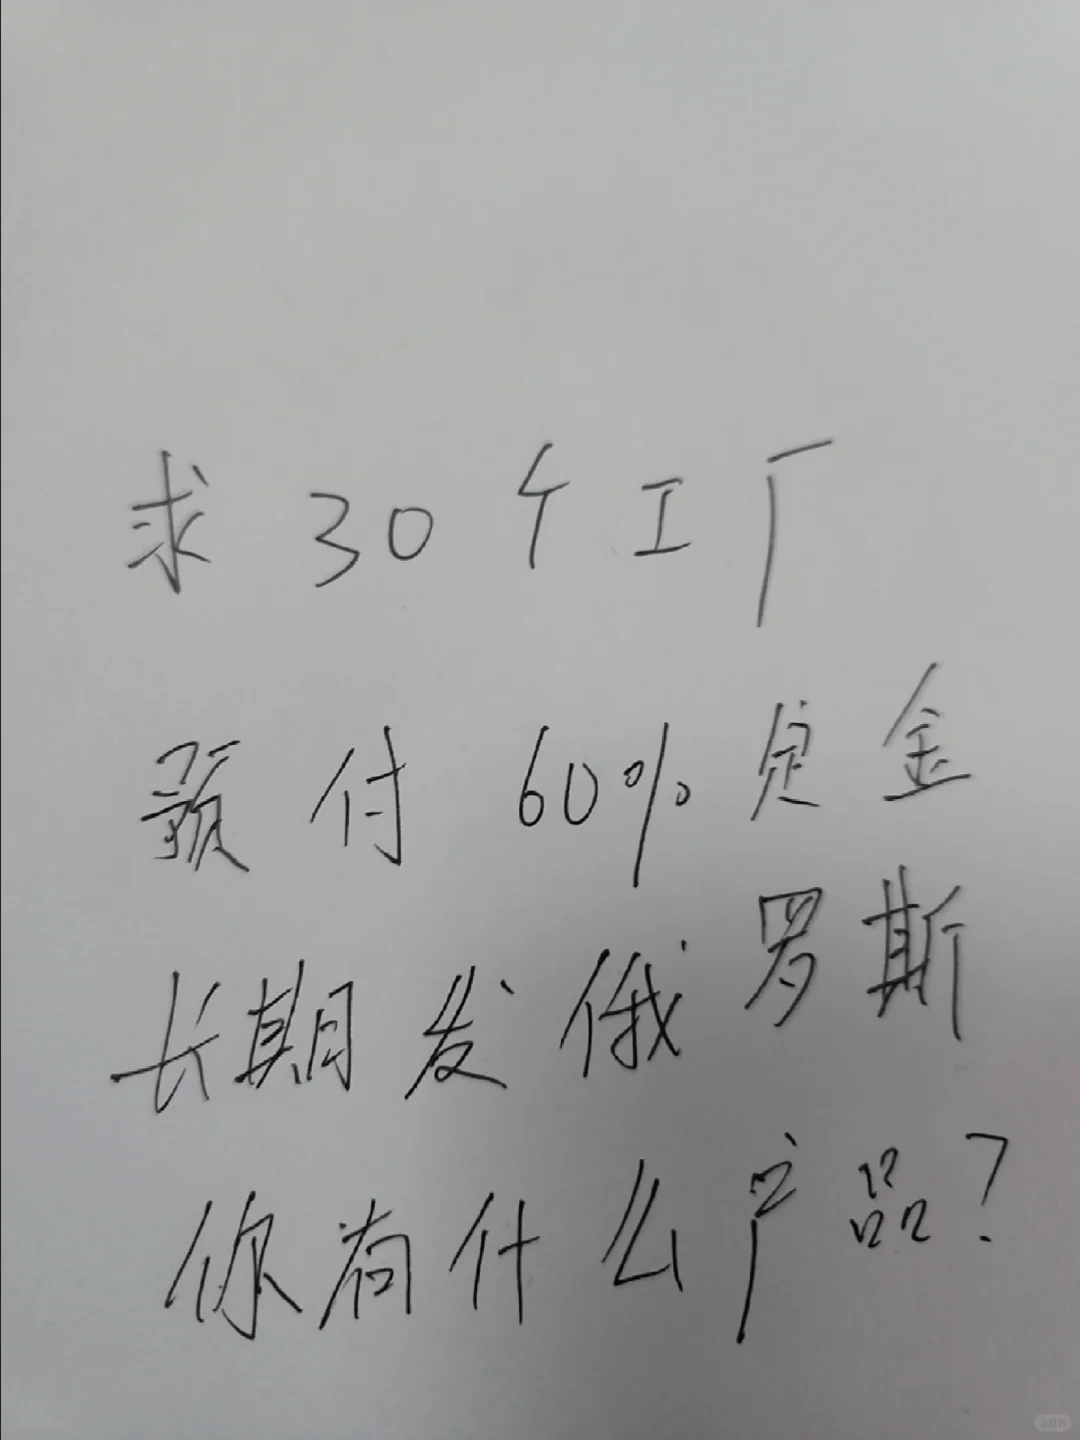 求30个工厂
预付60%定金
长期发俄罗斯
你有什么产品?
小红书